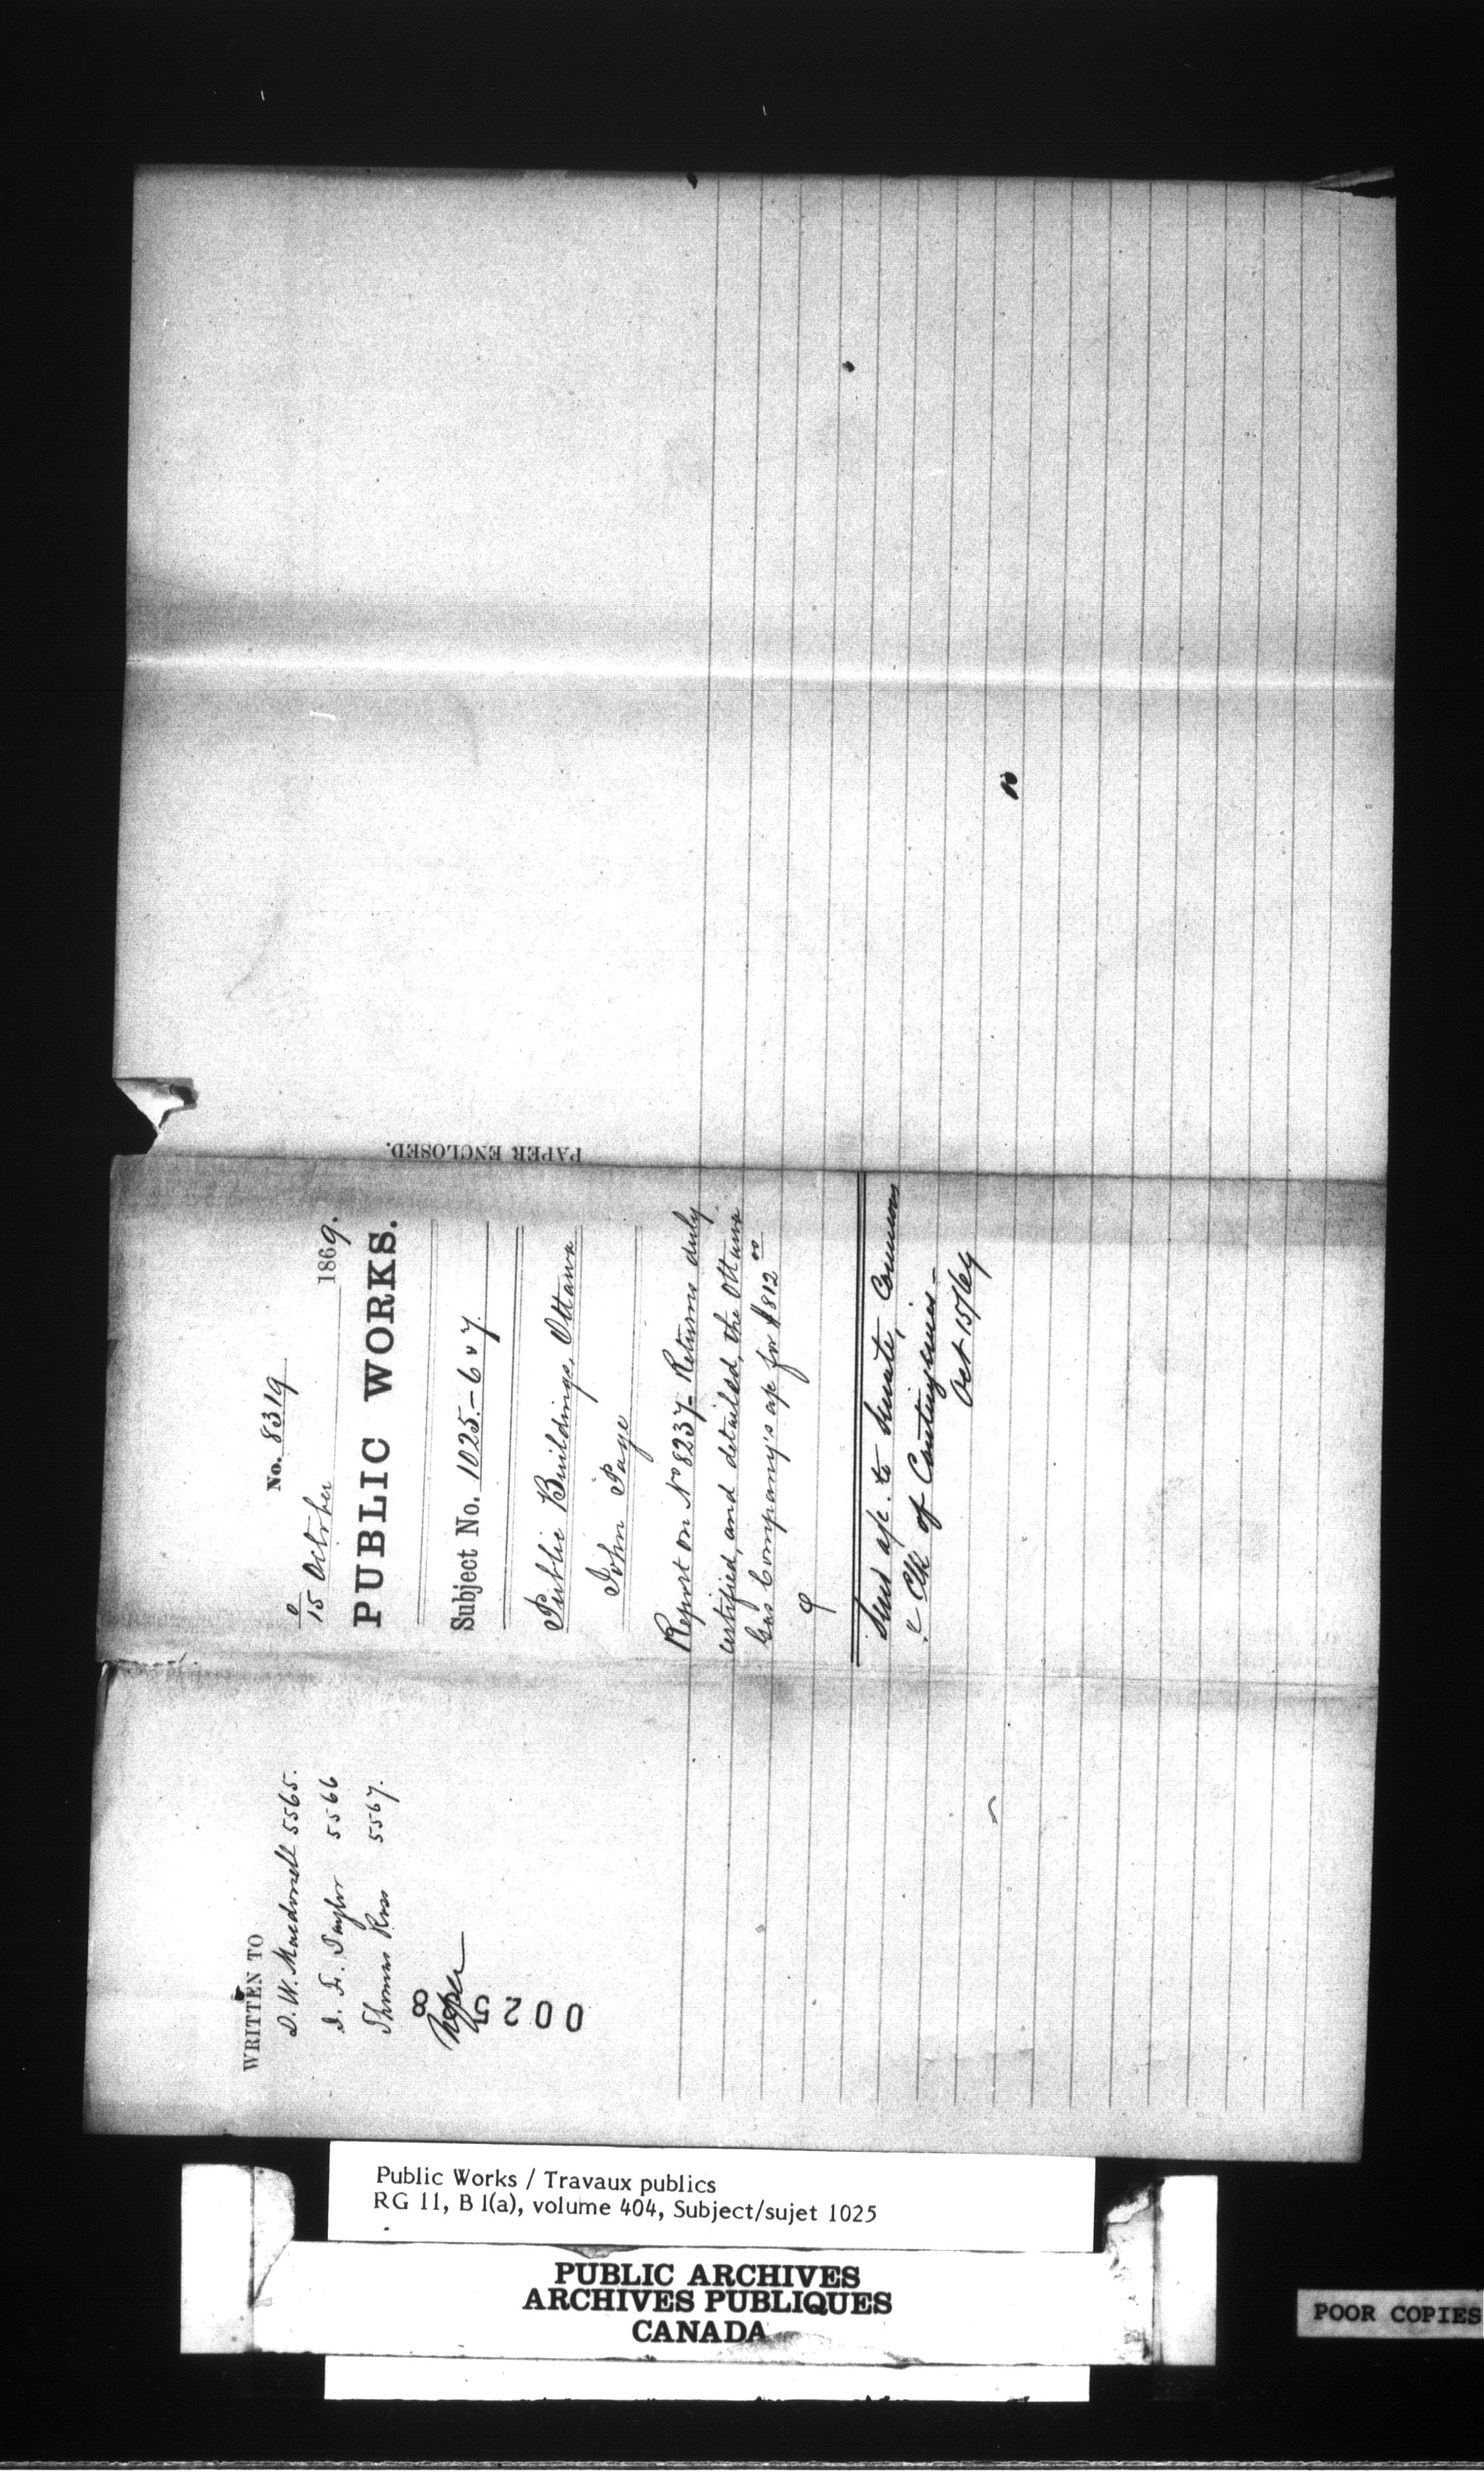 No. 8319
15 October 1869.
PUBLIC WORKS.
Subject No. 1025.-6 & 7.
Public Buildings, Ottawa
John Page
Report on No 8237- Returns duly
certified, and detailed, the Ottawa
Gas Company's a/c for $812 00
Send a/c. to Senate, Commons
& Clk of Contingencies -
Oct 15/69
PAPER ENCLOSED.
WRITTEN TO
D. W. Macdonell 5565.
Taylor 5566
Thomas Ross 5567.
00258
Public Works / Travaux publics
RG 11, B 1(a), volume 404, Subject/sujet 1025
PUBLIC ARCHIVES
ARCHIVES PUBLIQUES
CANADA
POOR COPIES